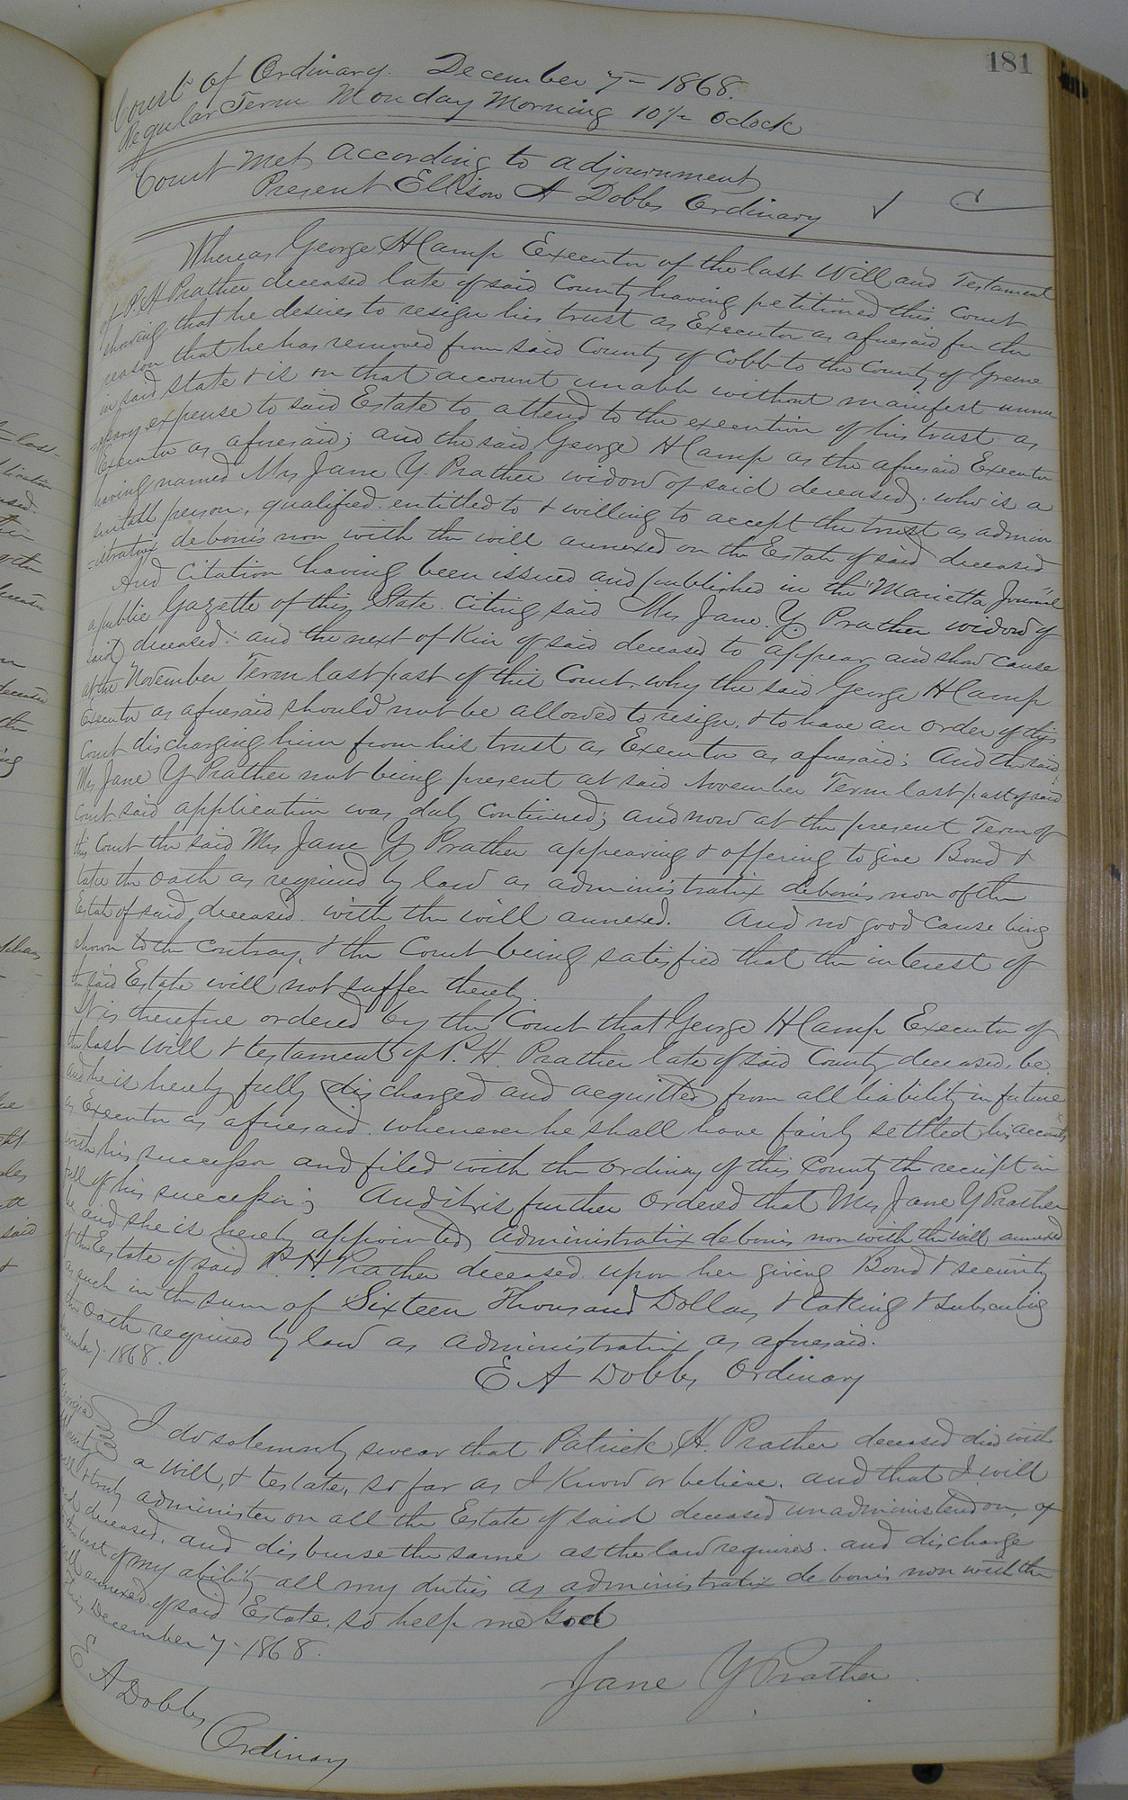 181
Court of Ordinary. December 7= 1868.
Regular Term Monday Morning 10 Oclock
Court met according to adjournment
Present Ellison A Dobbs Ordinary
Whereas George H Camp Executor of the last Will and Testament
of P. H Prather deceased late of said County having petitioned this Court
showing that he desires to resign his trust as Executor as aforesaid for the
reason that he has removed from said County of Cobb to the County of Greene
in said State & is on that account unable without manifest unne
=cessary expense to said Estate to attend to the execution of his trust as
Executor as aforesaid; and the said George H Camp as the aforesaid Executor
having named Mrs Jane Y. Prather widow of said deceased, who is a
suitable person, qualified entitled to & willing to accept the trust as admin
=istratrix debonis non with the will annexed on the Estate of said deceased
And Citation having been issued and published in the "Marietta Journal"
a public Gazette of this State. Citing said Mrs Jane. Y. Prather widow of
said deceased. and the next of Kin of said deceased to appear and show cause
at the November Term last past of this Court, why the said George H Camp
Executor as aforesaid should not be allowed to resign, & to have an order of this
Court discharging him from his trust as Executor as aforesaid; And the said
Mrs Jane Y Prather not being present at said November Term last past of said
Court said application was duly continued; and now at the present Term of
this Court the said Mrs Jane Y Prather appearing & offering to give Bond &
take the oath as required by law as administratrix debonis non of the
Estate of said deceased with the will annexed. And no good cause being
shown to the contrary, & the Court being satisfied that the interest of
the said Estate will not suffer thereby.
It is therefore ordered by the Court that George H Camp Executor of
the last Will & testament of P. H. Prather late of said County deceased, be
and he is hereby fully discharged and acquitted from all liability in future
as Executor as aforesaid. whenever he shall have fairly settled his accounts
with his successor and filed with the Ordinary of this County the receipt in
full of his successor; And it is further Ordered that Mrs Jane Y Prather
be and she is hereby appointed administratrix debonis non with the will annexed
of the Estate of said P. H. Prather deceased upon her giving Bond & security
as such in the sum of Sixteen Thousand Dollars & taking & subscribing
the oath required by law as administratrix as aforesaid.
December 7- 1868.
E A Dobbs Ordinary
Georgia I do solemnly swear that Patrick H. Prather deceased died with
County a Will, & testate, so far as I know or believe. and that I will
well & truly administer on all the Estate of said deceased unadministered on, of
said deceased. and disburse the same as the law requires. and discharge
to the best of my ability all my duties as administratrix de bonis non with the
will annexed of said Estate. so help me God
This December 7- 1868.
Jane Y Prather
E A Dobbs
Ordinary